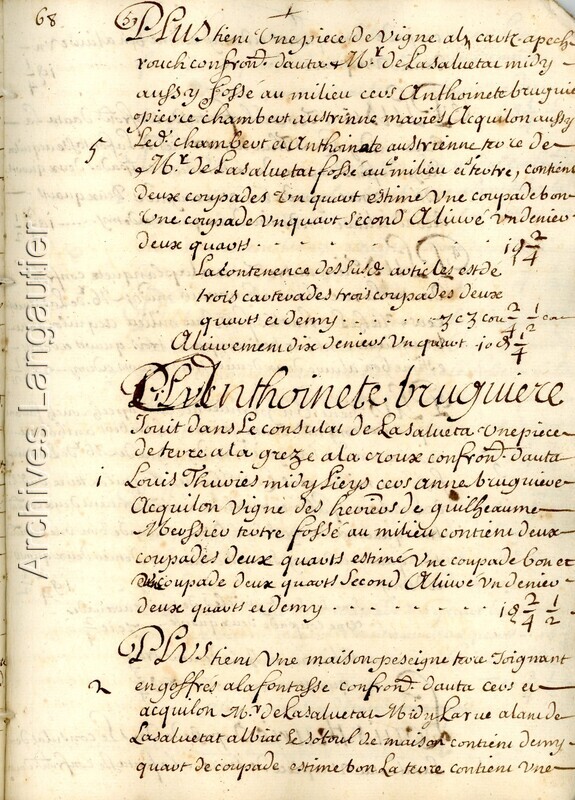 68
PLus tient Une piece de Vigne al
rouch confrond. dauta Mr. de Lasaluetat midy
aussy fosse au milieu cers Anthoinete bruguie
pierre chambert austrienne maries Acquilon aussy
5 Led. chambert et Anthoinete austrienne terre de
Mr. de Lasaluetat fosse au milieu et tertre, contient
deux coupades Un quart estimé Une coupade bon
Une coupade Un quart second Aliuré Un denier
deux quarts 1 d 2/4
La contenence desd. articles est de
trois carterades trois coupades deux
quarts et demy 3 c 3 cou 2/4 1/2
Aliurement dix deniers Un quart 10 d 1/4
Anthoinete bruguiere
Jouit dans Le consulat de Lasalueta Une piece
de terre a la greze a la croux confrond. dauta
1 Louis Thuries midy cers anne bruguiere
Acquilon Vigne des heretiers de guilheaume
Meyssier tertre fossé au milieu contient deux
coupades deux quarts estimé Une coupade bon et
coupade deux quarts second Aliuré Un denier
deux quarts et demy 1 d 2/4 1/2
PLUS tient Une maison terre Joignant
2 engoffres a la fontasse confrond. dauta cers et
acquilon Mr. de Lasaluetat Midy La rue alant de
Lasaluetat albiac Le sotoul de maison contient demy
quart de coupade estimé bon La terre contient Une
Archives Langautier